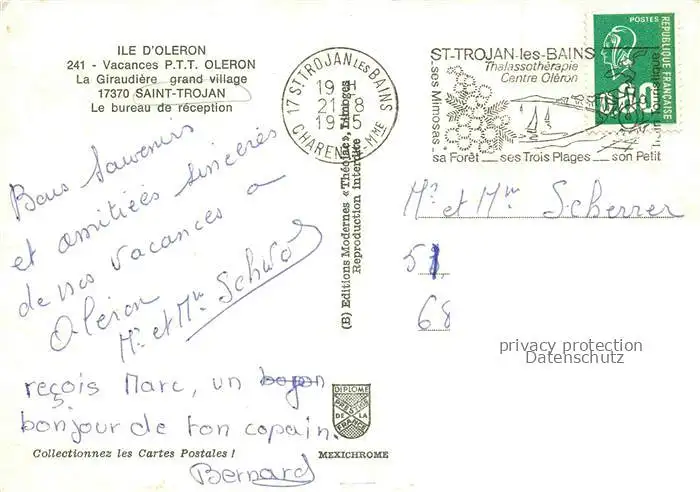 ILE D'OLERON
241 - Vacances P.T.T. OLERON
La Giraudière grand village
17370 SAINT-TROJAN
Le bureau de réception
Bons Souvenirs
et amitiées sincères
de nos vacances a
Oléron
Mr et Mme Schwob
reçois Marc, un bojon
bonjour de ton copain.
Bernard
Collectionnez les Cartes Postales !
MEXICHROME
DIPLOME
PRESTIGE
DE LA
FRANCE
(B) Editions Modernes « Théojac », Limoges
Reproduction Interdite
17 ST TROJAN LES BAINS
19 H
21 - 8
1975
CHARENTE-MME
ST-TROJAN-les-BAINS
Thalassothérapie
Centre Oléron
..ses Mimosas
sa Forêt __ ses Trois Plages __ son Petit
POSTES
REPUBLIQUE FRANÇAISE
0,60
Mr et Mme Scherrer
51
68
privacy protection
Datenschutz